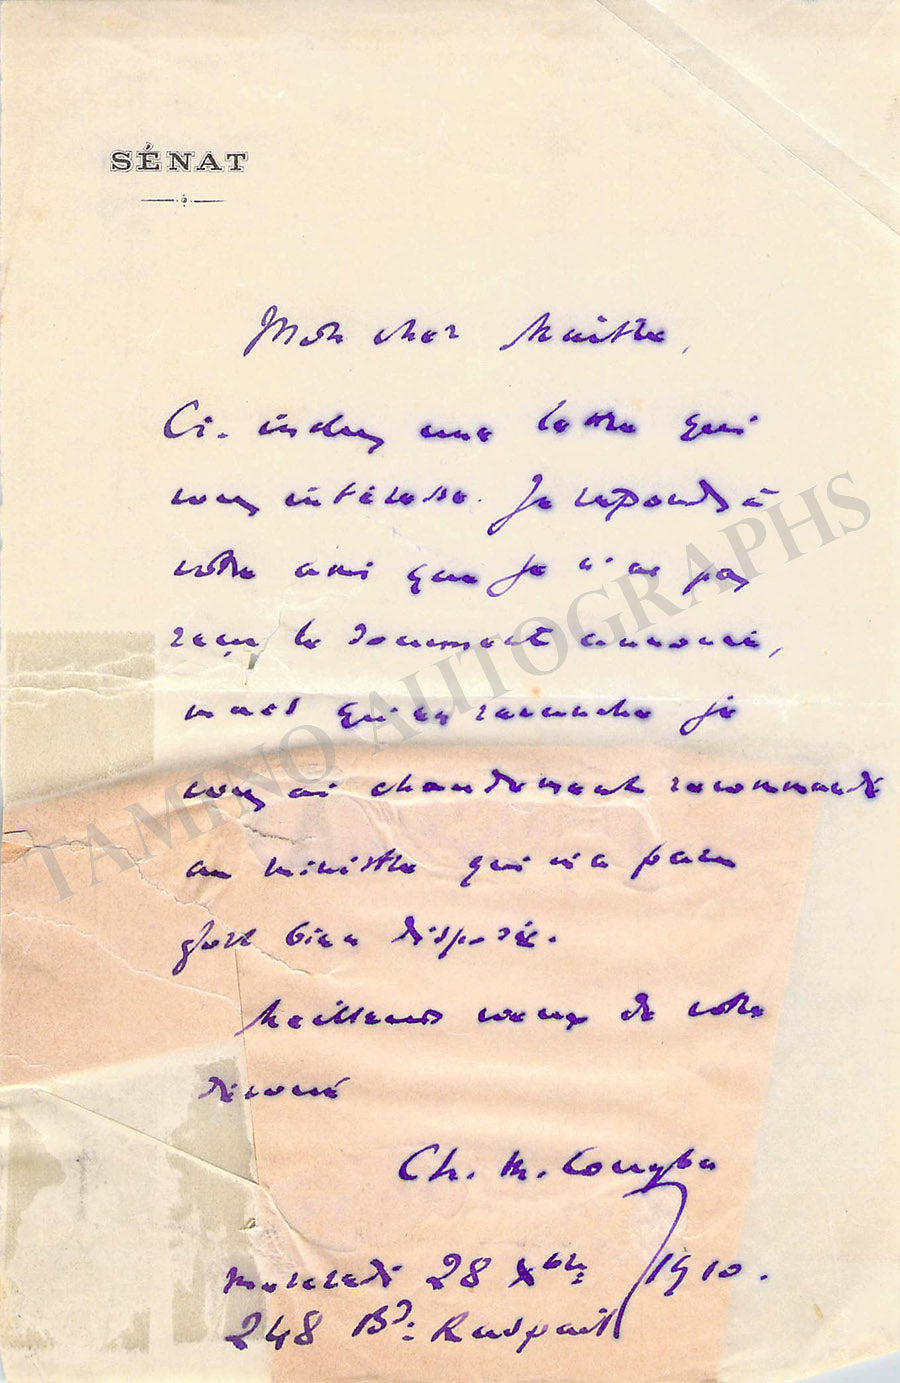 SÉNAT
Mon cher Maître,
Ci-inclus une lettre qui
vous intéresse. Je réponds à
votre ami que je n'ai pas
reçu le document annoncé,
mais qu'en revanche je
vous ai chaudement recommandé
au ministre qui m'a paru
fort bien disposé.
Meilleurs voeux de votre
dévoué
Ch. M. Couyba
Mercredi 28 Xbre 1910.
248 Bd: Raspail
TAMINO AUTOGRAPHS